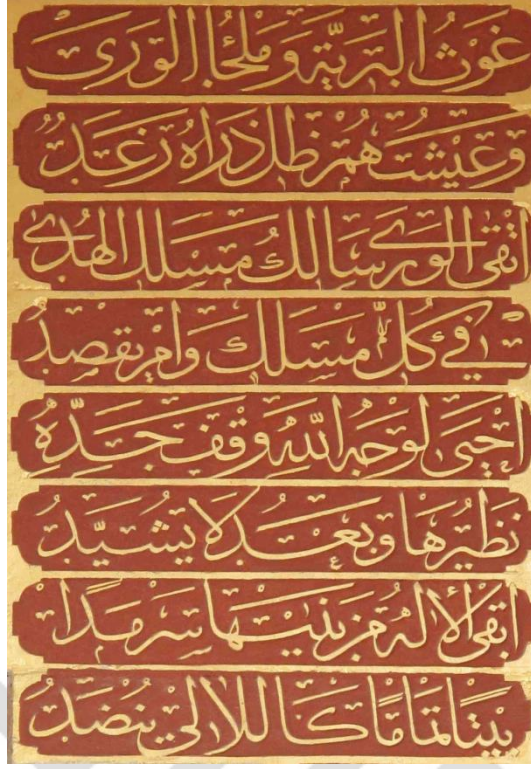 غَوْثُ البَرِيَّةِ وَمَلْجَأُ الْوَرَى
وَعَيْشُهُمْ ظِلَّ ذَرَاهُ رَغَدُ
اَتْقَى الْوَرَى سَالِكُ مَسْلَكِ الْهُدَى
فِي كُلِّ مَسْلَكٍ وَاَمْرٍ يَقْصِدُ
اَحْيَى لِوَجْهِ اللّٰهِ وَقْفَ جَدِّهِ
نَظِيرُهَا وَبَعْدُ لَا يُشَيَّدُ
اَبْقَى الْاِلٰهُ مَنْ بَنَيهَا سَرْمَدًا
بَيْتًا تَمَامًا كَاللَّالِي يُنْضَدُ